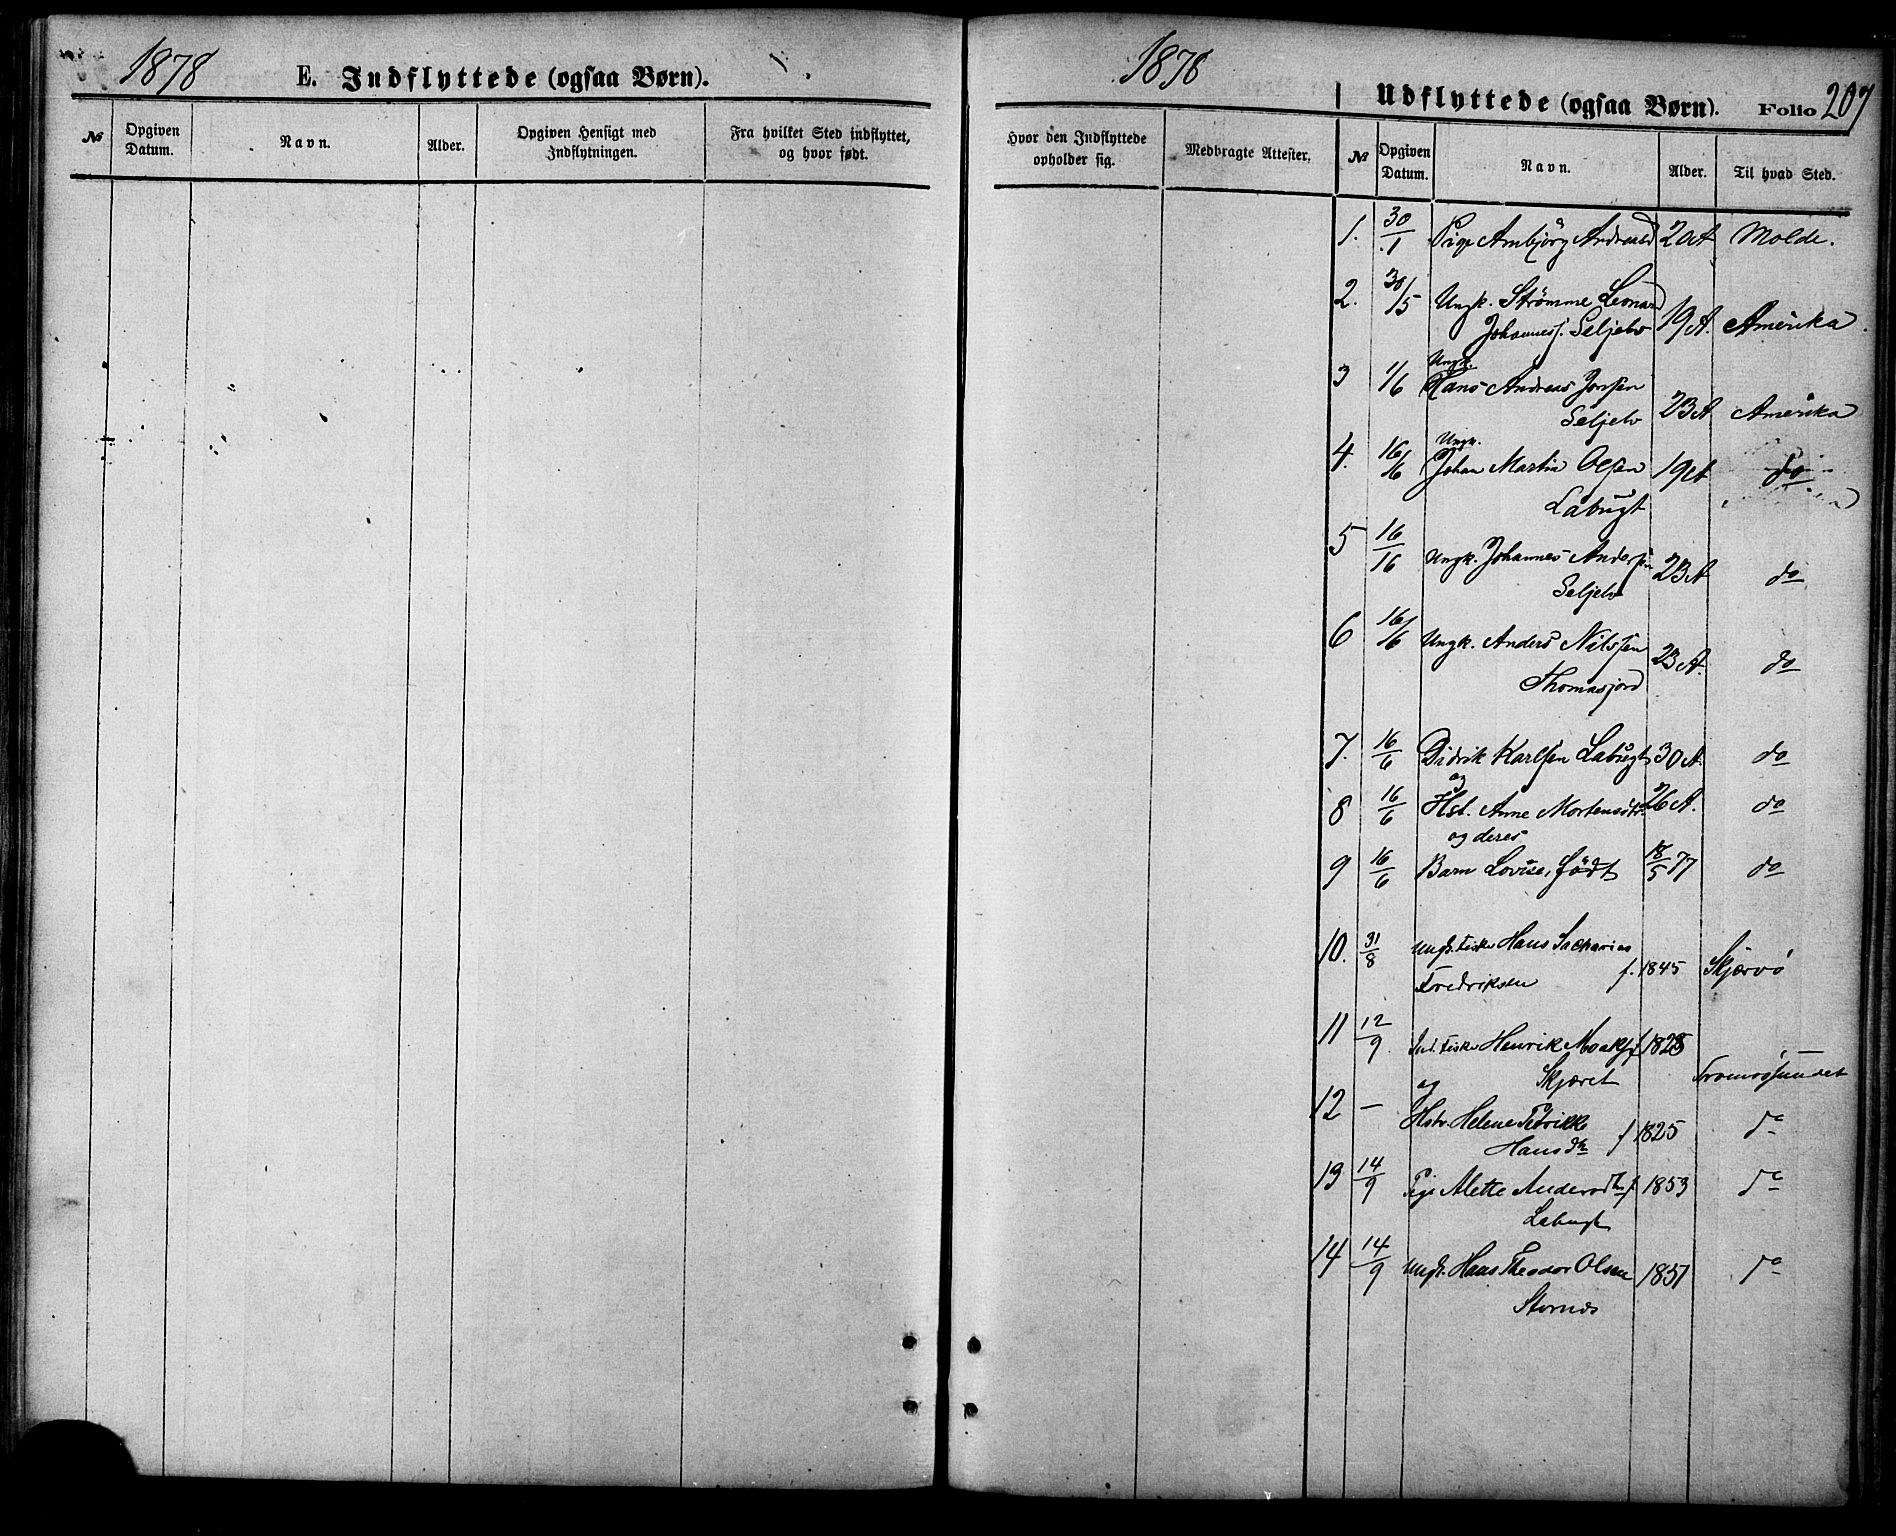 1878
E. Indflyttede (ogsaa Børn).
№ Opgiven Datum. Navn. Alder. Opgiven Hensigt med Indflytningen. Fra hvilket Sted indflyttet, og hvor født.
1878
Udflyttede (ogsaa Børn). Folio 207
Hvor den Indflyttede opholder sig. Medbragte Attester. № Opgiven Datum. Navn. Alder. Til hvad Sted.
1. 30/1 Pige Ambjörg Andreasd 20 A Molde.
2. 30/5 Ungk. Strömme Leonard
Johanness. Seljelv 19 A. Amerika.
Ungk.
3 1/6 Hans Andreas Jonsen
Seljelv 23 A Amerika
Ungk.
4. 16/6 Johan Martin Olsen 19 A do
Labugt
5 16/16 Ungk. Johannes Andersen 23 A do
Seljelv
6 16/6 Ungk. Anders Nilssen 23 A. do
Thomasjord
7. 16/6 Didrik Karlsen Labugt 30 A. do
og
8 16/6 Hst. Anne Mortensdtr. 26 A. do
og deres
9 16/6 Barn Lovise, födt 18/5 77 do
10. 31/8 Ungk. Fisker Hans Zacharias
Fredriksen f. 1845 Skjærvö
11 12/9 Ind. Fisker Henrik f 1828
og Skjæret Tromsösundet
12 — Hstr. Helene Petrikke
Hansdtr f 1825 do
13 14/9 Pige Alette Andersdtr f 1853 do
Labugt
14 14/9 Ungk. Hans Theodor Olsen 1857 do
Stornes